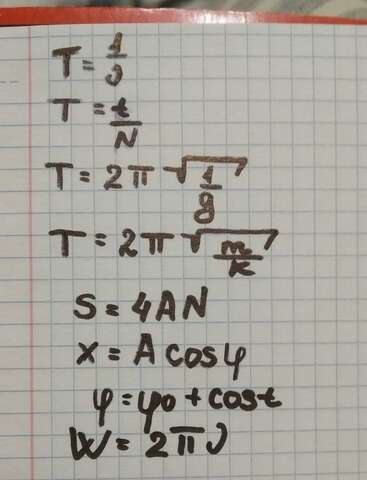 T = 1/ν
T = t/N
T = 2π √(1/g)
T = 2π √(m/k)
S = 4AN
x = A cosφ
φ = φ0 + cost
W = 2πν